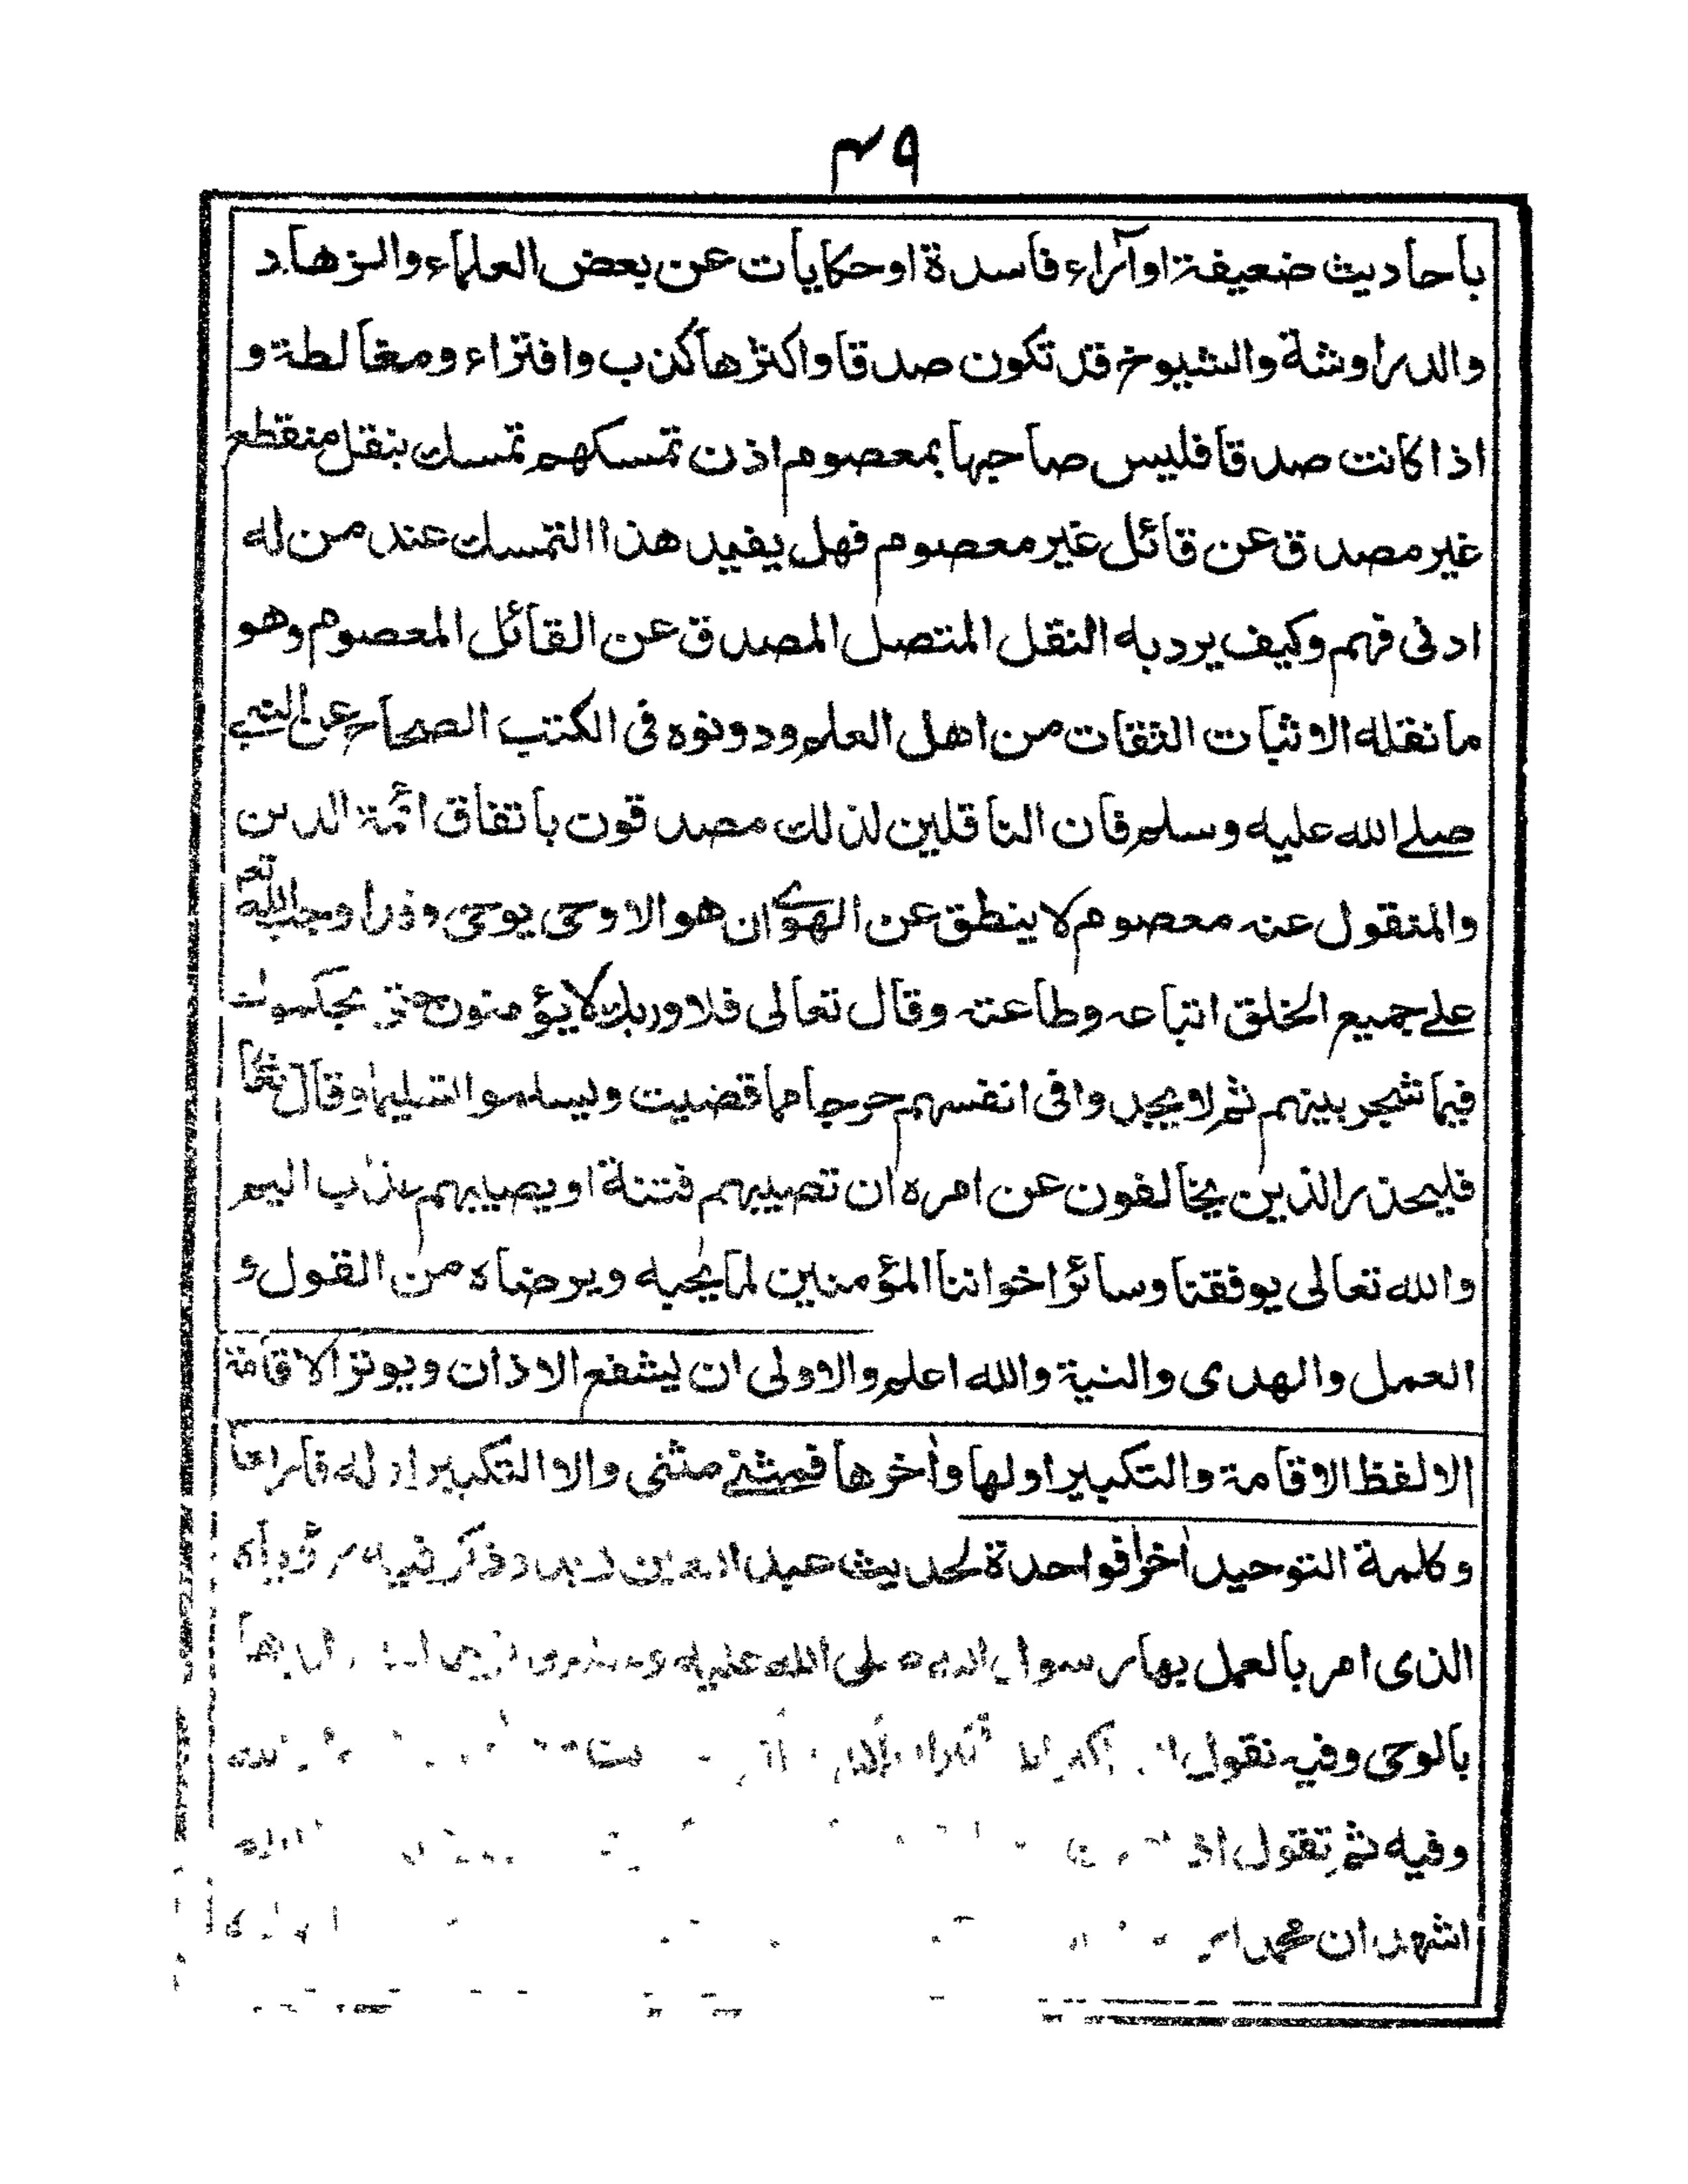 ٤٩
باحاديث ضعيفة اوآراء فاسدة اوحكايات عن بعض العلماء والزهاد
والدراوشة والشيوخ قد تكون صدقا واكثرها كذب وافتراء ومغالطة و
اذا كانت صدقا فليس صاحبها بمعصوم اذن تمسكهم تمسك بنقل منقطع
غير مصدق عن قائل غير معصوم فهل يفيد هذا التمسك عند من له
ادنى فهم وكيف يرد به النقل المتصل المصدق عن القائل المعصوم وهو
ما نقله الاثبات الثقات من اهل العلم ودونوه فى الكتب الصحاح عن النبي
صلے الله عليه وسلم فان الناقلين لذلك مصدقون باتفاق ائمة الدين
والمنقول عنه معصوم لا ينطق عن الهوى ان هو الا وحى يوحى وذرا وجب الله تعم
علے جميع الخلق اتباعه وطاعته وقال تعالى فلا وربك لا يؤمنون حتى يحكموك
فيما شجر بينهم ثم لا يجدوا فى انفسهم حرجا مما قضيت ويسلموا تسليما وقال تعا
فليحذر الذين يخالفون عن امره ان تصيبهم فتنة او يصيبهم عذاب اليم
والله تعالى يوفقنا وسائر اخواننا المؤمنين لما يحبه ويرضاه من القول و
العمل والهدى والنية والله اعلم والاولى ان يشفع الاذان ويوتر الاقامة
الا لفظ الاقامة والتكبير اولها وأخرها فمثنے مثنى والا التكبير اوله فاربعا
وكلمة التوحيد أخرا فواحدة لحديث عبد الله بن زيد وذكر فيه رؤياه
الذى امر بالعمل بها رسول الله صلى الله عليه
بالوحى وفيه نقول
وفيه ثم تقول اذا
اشهد ان محمدا